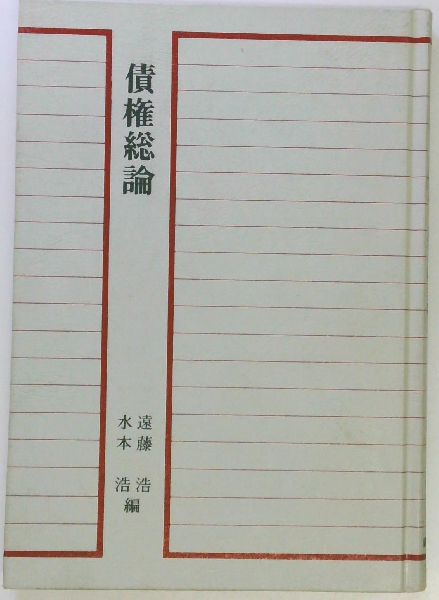 債権総論
遠藤 浩
水本 浩
編